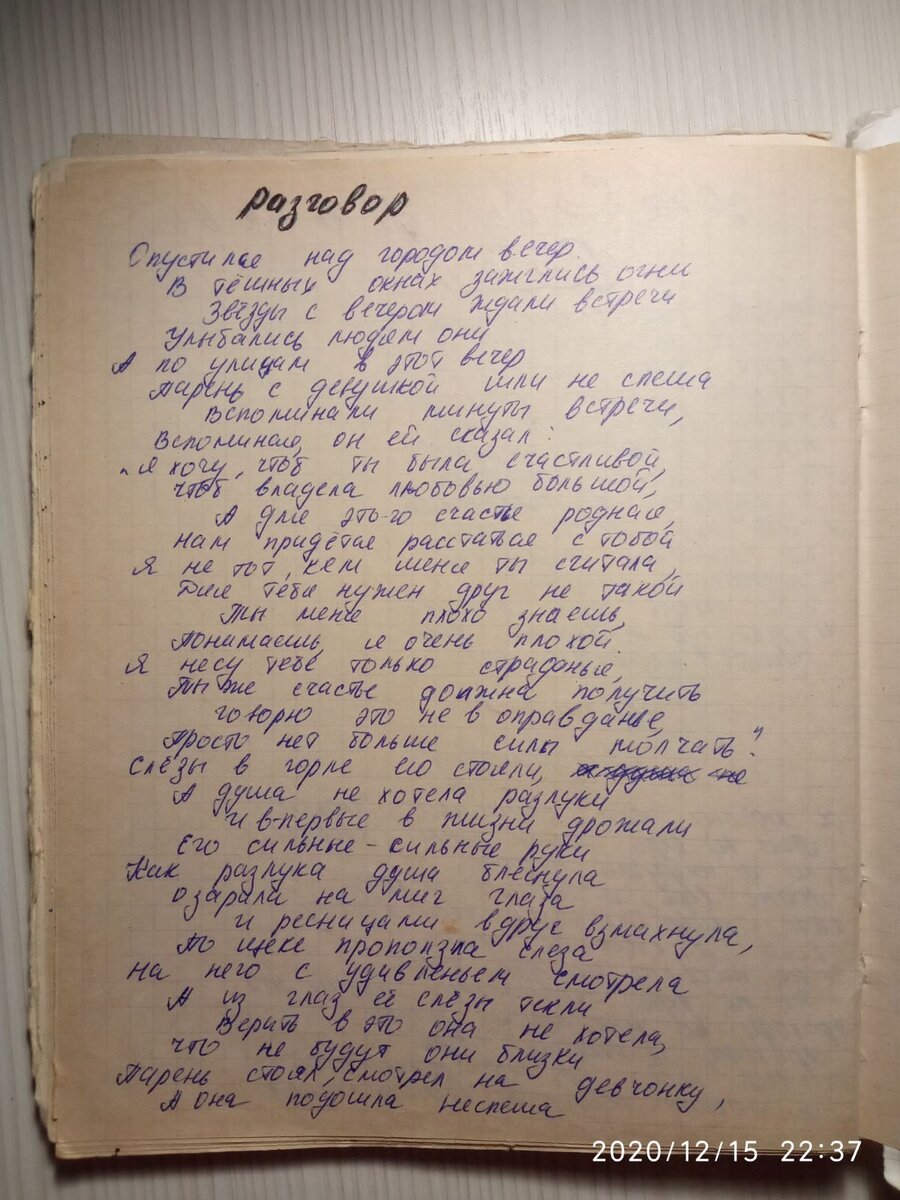 Разговор
Опустился над городом вечер.
В тёмных окнах зажглись огни
Звёзды с вечером ждали встречи
Улыбались людям они
А по улицам в этот вечер
Парень с девушкой шли не спеша
Вспоминали минуты встречи,
Вспоминая, он ей сказал:
"Я хочу, чтоб ты была счастливой,
чтоб владела любовью большой,
А для это-го счастья родная,
нам придётся расстаться с тобой
Я не тот, кем меня ты считала,
Для тебя нужен друг не такой
Ты меня плохо знаешь,
Понимаешь, я очень плохой.
Я несу тебе только страданье,
Ты же счастье должна получить
говорю это не в оправданье,
Просто нет больше силы молчать."
Слёзы в горле его стояли,
А душа не хотела разлуки
И в-первые в жизни дрожали
Его сильные-сильные руки
Как разлука душа блеснула
озарила на миг глаза
и ресницами вдруг взмахнула,
По щеке проползла слеза
на него с удивленьем смотрела
А из глаз её слёзы текли
Верить в это она не хотела,
что не будут они близки
Парень стоял, смотрел на девчонку,
А она подошла неспеша
2020/12/15 22:37